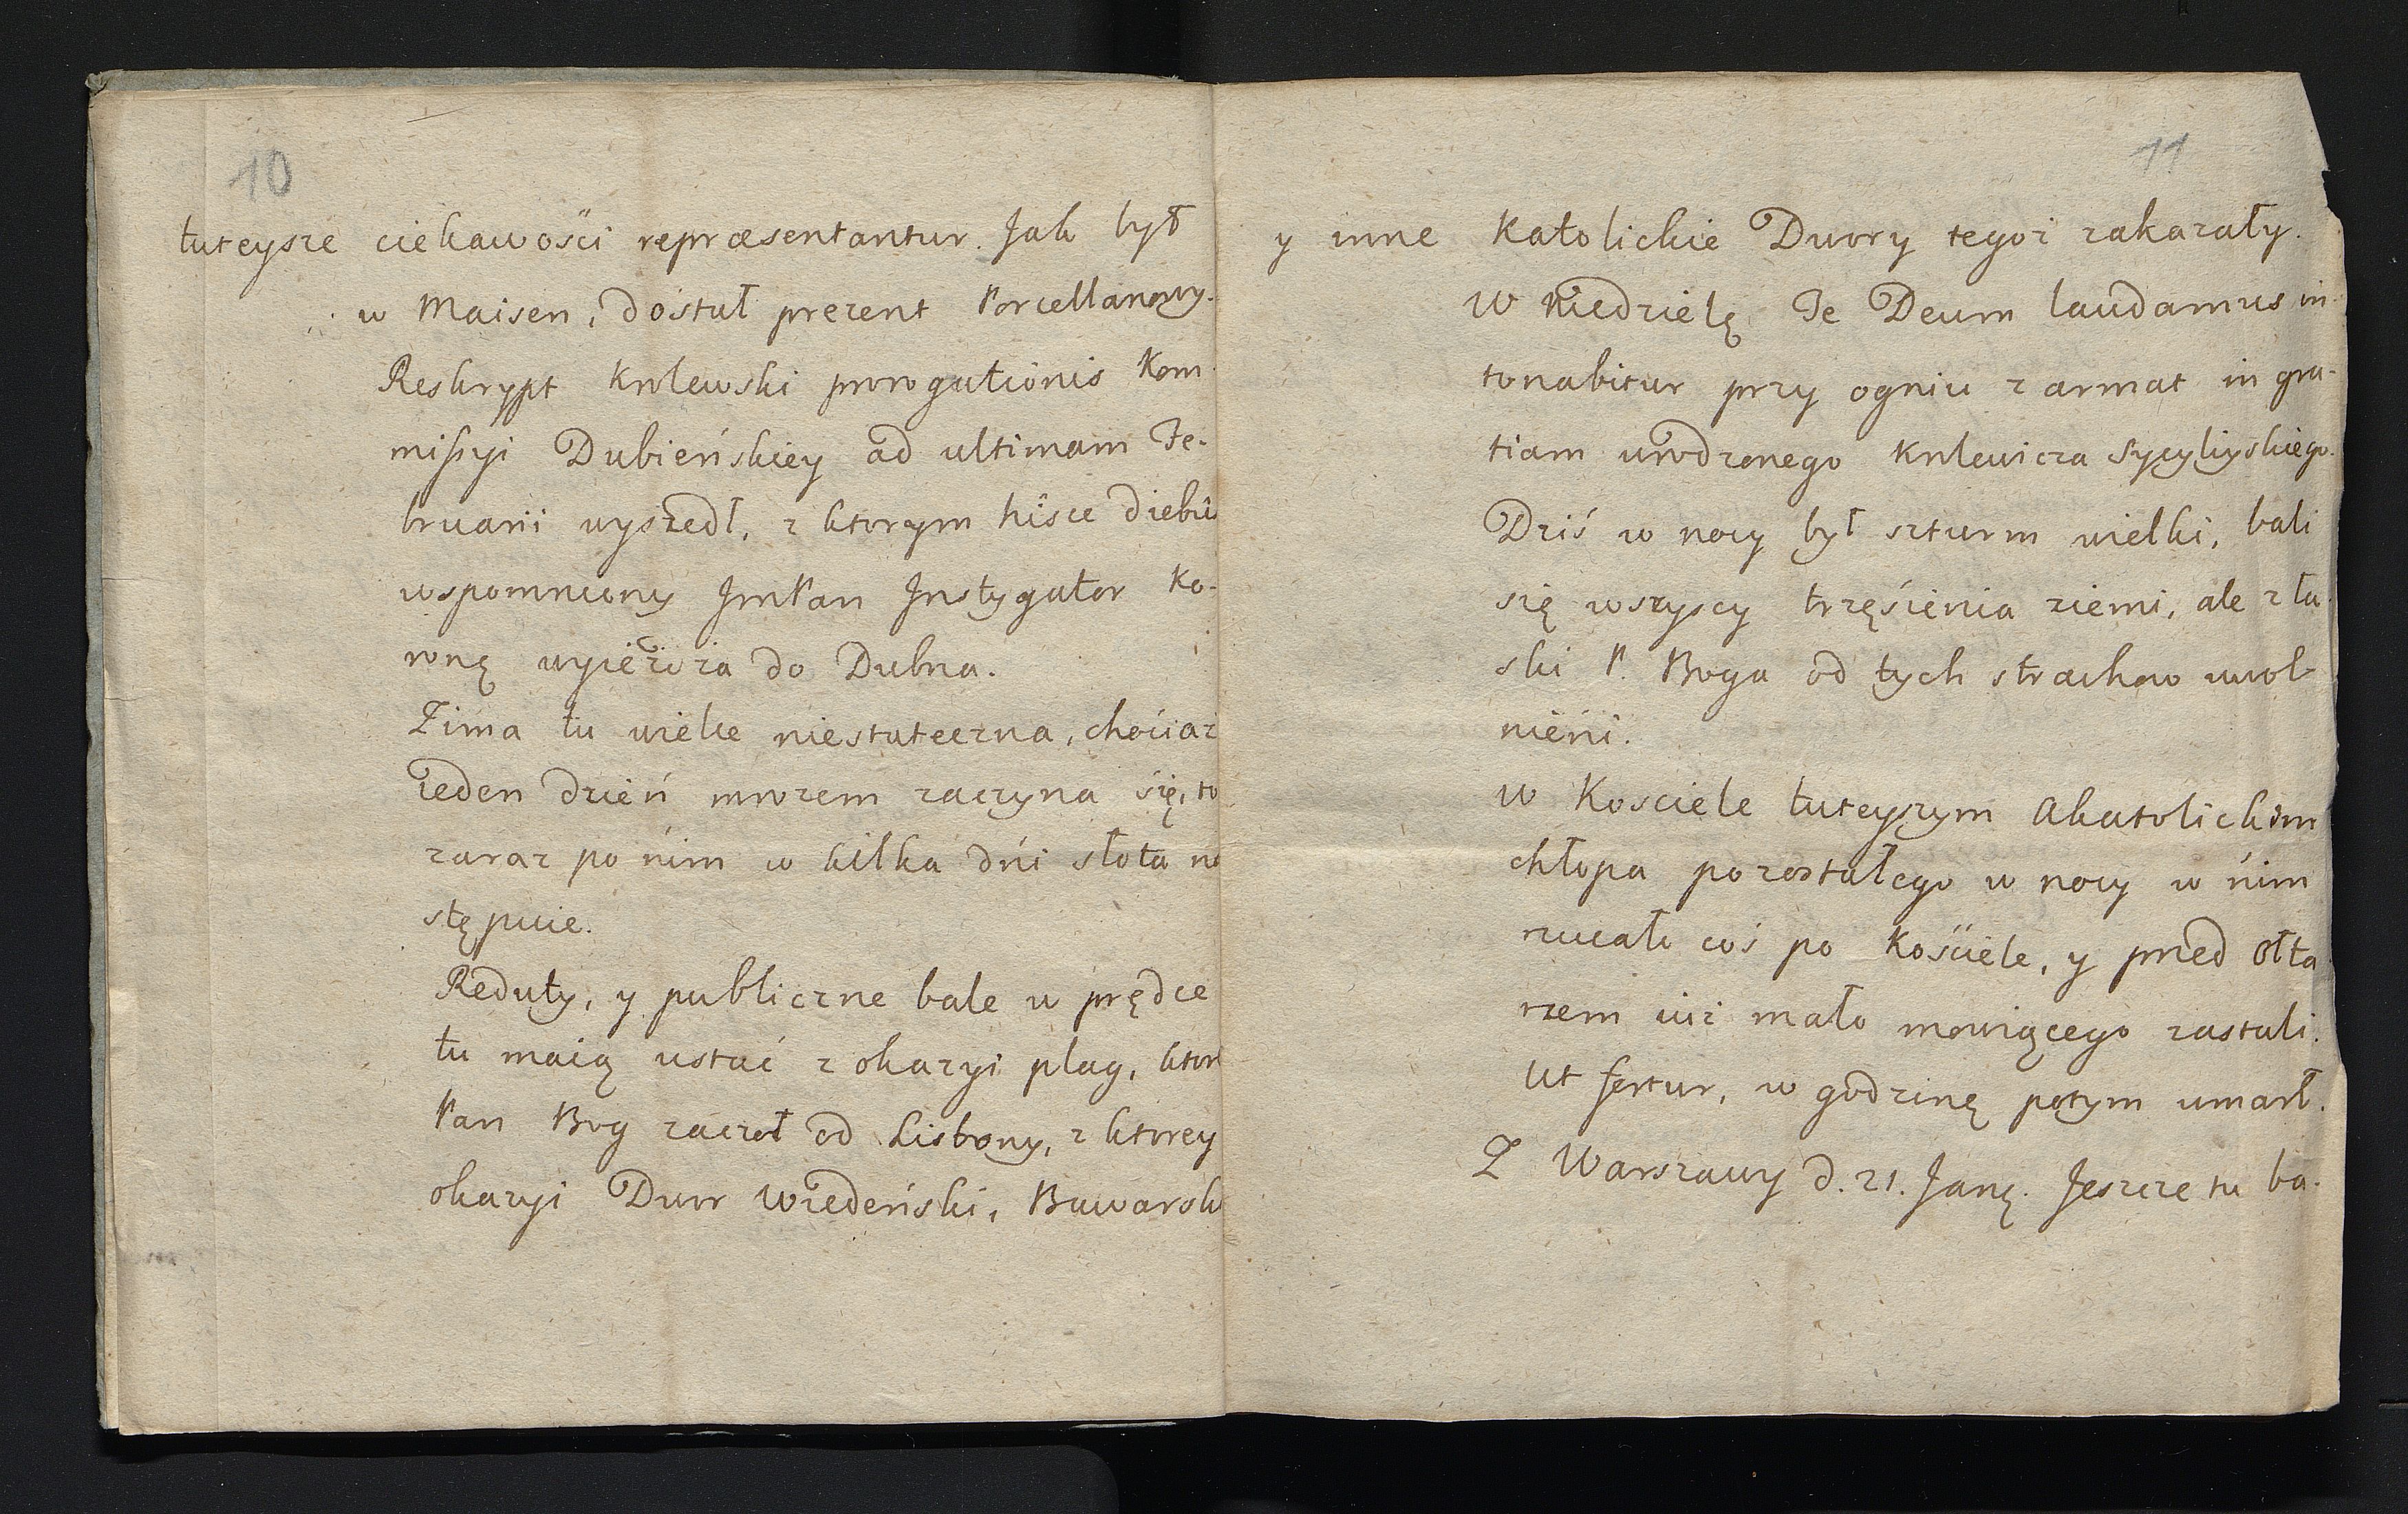 10
tuteysze ciekawości repræsentantur. Jak był
w Maisen, dostał prezent Porcellanowy.
Reskrypt Krolewski prorogationis Kom-
missyi Dubieńskiey ad ultimam Fe-
bruarii wyszedł, z ktorym hisce diebus
wspomniony JmPan Jnstygator Ko-
ronę wyieżdza do Dubna.
Zima tu wielce niestateczna, chociaż
ieden dzień mrozem zaczyna się, to
zaraz po nim w kilka dni słota na
stępuie.
Reduty, y publiczne bale w prędce
tu maią ustać z okazyi plag, ktore
Pan Bog zaczoł od Lisbony, z ktorey
okazyi Dwor Wiedeński, Bawarski
11
y inne Katolickie Dwory tegoż zakazały.
W Niedzielę Te Deum laudamus in-
tonabitur przy ogniu z armat in gra-
tiam urodzonego Krolewicza Sycyliyskiego.
Dziś w nocy był szturm wielki, bali
się wszyscy trzęsienia ziemi, ale z ła-
ski P. Boga od tych strachow uwol-
nieni.
W Kosciele tuteyszym Akatolickim
chłopa pozostałego w nocy w nim
rzucało coś po Kościele, y przed Ołta
rzem iuż mało mowiącego zastali.
Ut fertur, w godzinę potym umarł.
Z Warszawy d. 21. Janę. Jeszcze tu ba-